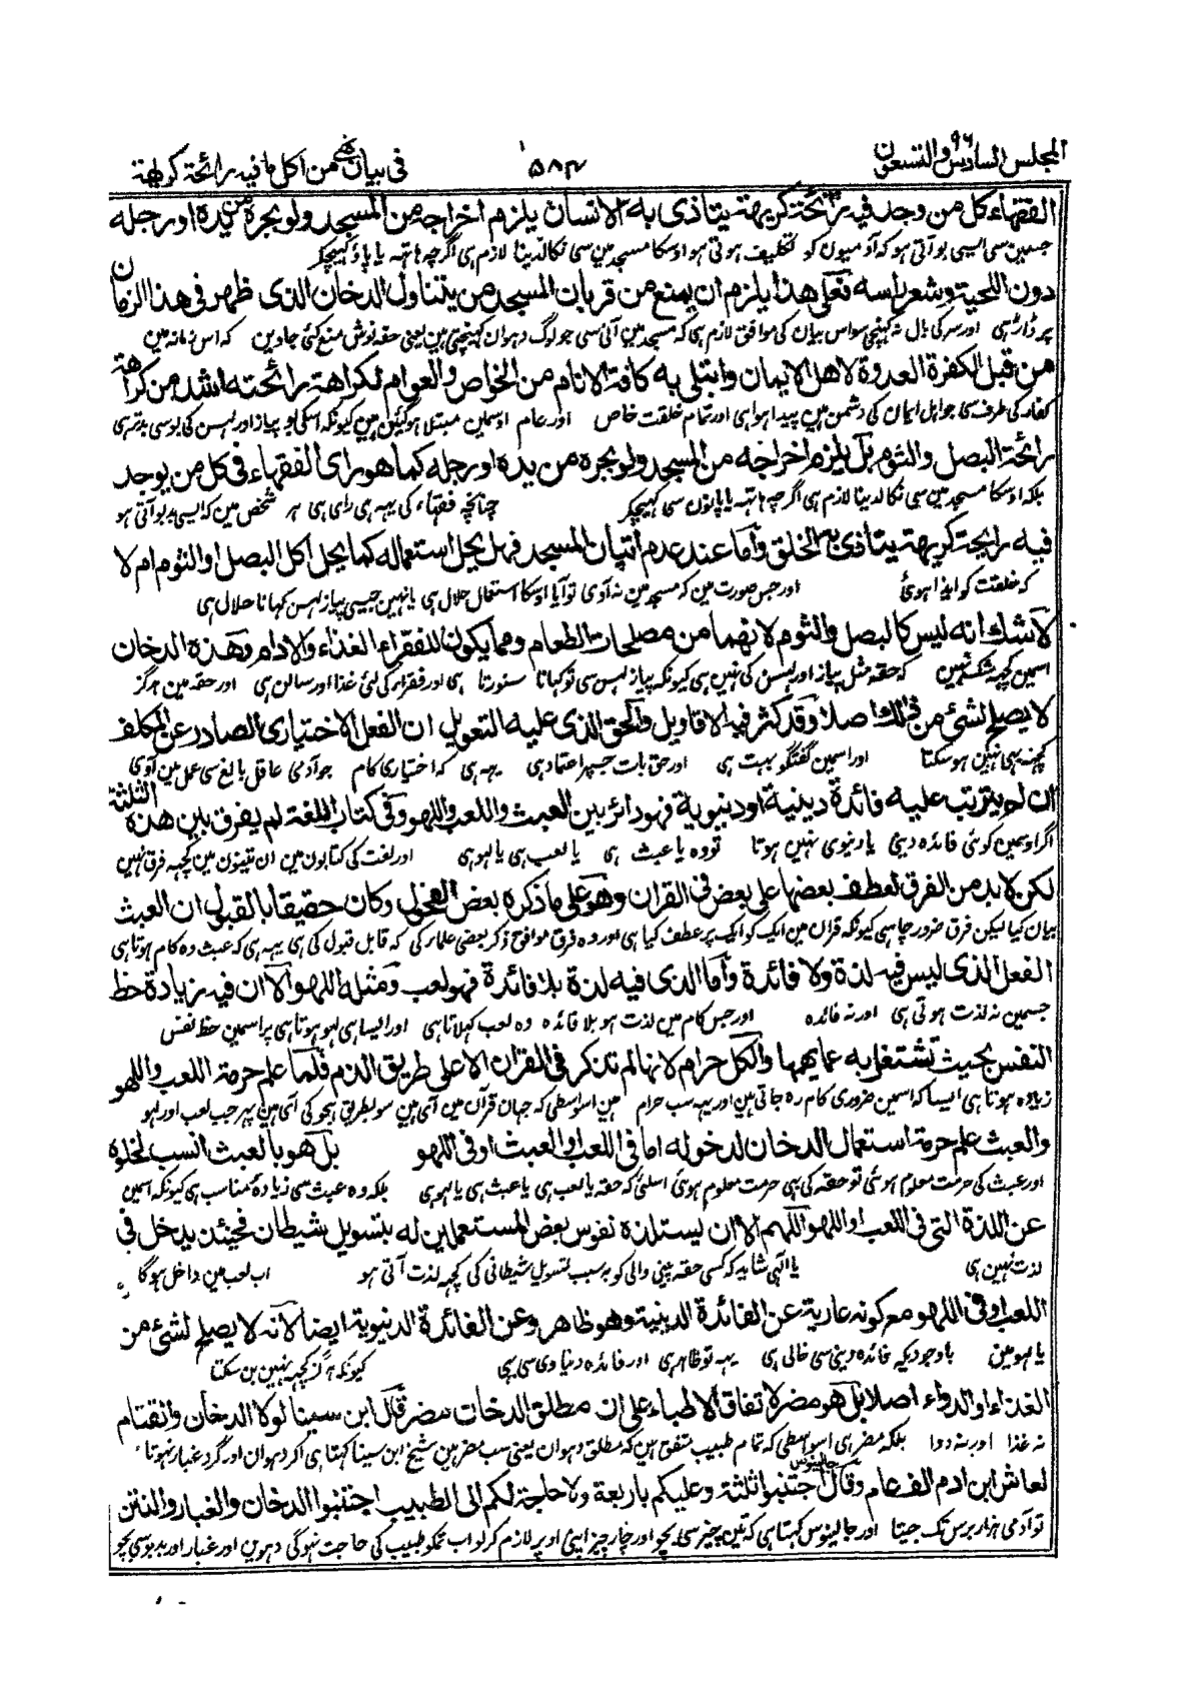 المجلس السادس والتسعون ٩٦
٥٨٣
فی بیان من اکل ما فیہ رائحۃ کریھۃ
الفقهاء کل من وجد فیہ رائحۃ کریھۃ یتاذی بہ الانسان یلزم اخراجہ من المسجد ولو بجرہ من یدہ او رجلہ
جسمین سی ایسی بو آتی ہو کہ آدمیون کو تکلیف ہوتی ہو اوسکا مسجد مین سی نکالدینا لازم ہی اگرچہ ہاتہہ یا پاؤ کہینچکر
دون اللحیۃ وشعر راسہ فعلی ھذا یلزم ان یمنع من قربان المسجد من یتناول الدخان الذی ظھر فی ھذا الزمان
پر ڈاڑہی اور سر کی بال نہ کہنچی سو اس بیان کی موافق لازم ہی کہ مسجد مین آنی سی جو لوگ دہوان کہینچتی ہین یعنی حقہ نوش منع کئی جاوین کہ اس زمانہ مین
من قبل الکفرۃ العدوۃ لاھل الایمان وابتلی بہ کافۃ الانام من الخواص والعوام لکراھۃ رائحتہ اشد من کراھۃ
کفار کی طرف سی جو اہل ایمان کی دشمن ہین پیدا ہوا ہی اور تمام خلقت خاص اور عام اوسمین مبتلا ہو گئین ہین کیونکہ اسکی بو پیاز اور لہسن کی بو سی بدتر ہی
رائحۃ البصل والثوم بل یلزم اخراجہ من المسجد ولو بجرہ من یدہ او رجلہ کما ھو رای الفقھاء فی کل من یوجد
بلکہ اوسکا مسجد مین سی نکالدینا لازم ہی اگرچہ ہاتہہ یا پانون سی کہینچکر چنانچہ فقہاء کی یہہ ہی رای ہی ہر شخص مین کہ ایسی بدبو آتی ہو
فیہ رایحۃ کریھۃ یتاذی بہ الخلق واما عند عدم اتیان المسجد فھل یحل استعمالہ کما یحل اکل البصل والثوم ام لا
کہ خلقت کو ایذا ہوئی اور جس صورت مین کہ مسجد مین نہ آوی تو آیا اوسکا استعمال حلال ہی یا نہین جیسی پیاز لہسن کہانا حلال ہی
لا شک انہ لیس کالبصل والثوم لانھما من مصلحات الطعام ومما یکون للفقراء الغذاء والادام وھذہ الدخان
اسمین کچہہ شک نہین کہ حقہ مثل پیاز اور لہسن کی نہین ہی کیونکہ پیاز لہسن سی تو کہانا سنورتا ہی اور فقراء کی لئی غذا اور سالن ہی اور حقہ مین ہرگز
لا یصلح لشئ من ذلک اصلا وقد کثر فیہ الاقاویل والحق الذی علیہ التعویل ان الفعل الاختیاری الصادر عن المکلف
کچہہ بہی نہین ہو سکتا اور اسمین گفتگو بہت ہی اور حق بات جسپر اعتماد ہی یہہ ہی کہ اختیاری کام جو آدمی عاقل بالغ سی عمل مین آوی
ان لم یترتب علیہ فائدۃ دینیۃ او دنیویۃ فھو دائر بین العبث واللعب واللھو وفی کتاب اللغۃ لم یفرق بین ھذہ الثلثۃ
اگر اوسمین کوئی فائدہ دینی یا دنیوی نہین ہوتا تو وہ یا عبث ہی یا لعب ہی یا لہو ہی اور لغت کی کتابون مین ان تینون مین کچہہ فرق نہین
لکن لا بد من الفرق لعطف بعضھا علی بعض فی القران وھو علی ما ذکرہ بعض الفحول وکان حقیقا بالقبول ان العبث
بیان کیا لیکن فرق ضرور چاہی کیونکہ قران مین ایک کو ایک پر عطف کیا ہی اور وہ فرق موافق ذکر بعضی علماء کی کہ قابل قبول کی ہی یہہ ہی کہ عبث وہ کام ہوتا ہی
الفعل الذی لیس فیہ لذۃ ولا فائدۃ واما الذی فیہ لذۃ بلا فائدۃ فھو لعب ومثلہ اللھو الا ان فیہ زیادۃ حظ
جسمین نہ لذت ہوتی ہی اور نہ فائدہ اور جس کام مین لذت ہو بلا فائدہ وہ لعب کہلاتا ہی اور ایسا ہی لہو ہوتا ہی پر اسمین حظ نفس
النفس بحیث تشتغل بہ عما یھمھا والکل حرام لانھا لم تذکر فی القران الا علی طریق الذم فلما علم حرمۃ اللعب واللھو
زیادہ ہوتا ہی ایسا کہ اسمین ضروری کام رہ جاتی ہین اور یہہ سب حرام ہین اسواسطی کہ جہان قرآن مین آی ہین سو بطریق ہجو کی آی ہین پہر جب لعب اور لہو
والعبث علم حرمۃ استعمال الدخان لدخولہ اما فی اللعب او العبث او فی اللھو بل ھو بالعبث انسب لخلوہ
اور عبث کی حرمت معلوم ہوئی تو حقہ کی بہی حرمت معلوم ہوئی اسلئی کہ حقہ یا لعب ہی یا عبث ہی یا لہو ہی بلکہ وہ عبث سی زیادہ مناسب ہی کیونکہ اسمین
عن اللذۃ التی فی اللعب او اللھو اللھم الا ان یستلذہ نفوس بعض المستعملین لہ بتسویل شیطان فحینئذ یدخل فی
لذت نہین ہی یا الہی شاید کہ کسی حقہ پینی والی کو بسبب تسویل شیطانی کی کچہہ لذت آتی ہو اب لعب مین داخل ہوگا
اللعب او فی اللھو مع کونہ عاریۃ عن الفائدۃ الدینیۃ وھو ظاھر وعن الفائدۃ الدنیویۃ ایضا لانہ لا یصلح لشئ من
یا لہو مین باوجودیکہ فائدہ دینی سی خالی ہی یہہ تو ظاہر ہی اور فائدہ دنیاوی سی بہی کیونکہ ہرگز کچہہ نہین بن سکتا
الغذاء او الدواء اصلا بل ھو مضر لاتفاق الاطباء علی ان مطلق الدخان مضر قال ابن سینا لولا الدخان والقتام
نہ غذا اور نہ دوا بلکہ مضر ہی اسواسطی کہ تمام طبیب متفق ہین کہ مطلق دہوان یعنی سب مضر ہین شیخ ابن سینا کہتا ہی اگر دہوان اور گرد غبار نہوتا
لعاش ابن ادم الف عام وقال جالینوس اجتنبوا ثلثۃ وعلیکم باربعۃ ولا حاجۃ لکم الی الطبیب اجتنبوا الدخان والغبار والنتن
تو آدمی ہزار برس تک جیتا اور جالینوس کہتا ہی کہ تین چیز سی بچو اور چار چیز اپنی اوپر لازم کر لو اب تمکو طبیب کی حاجت نہوگی دہوین اور غبار اور بدبو سی بچو